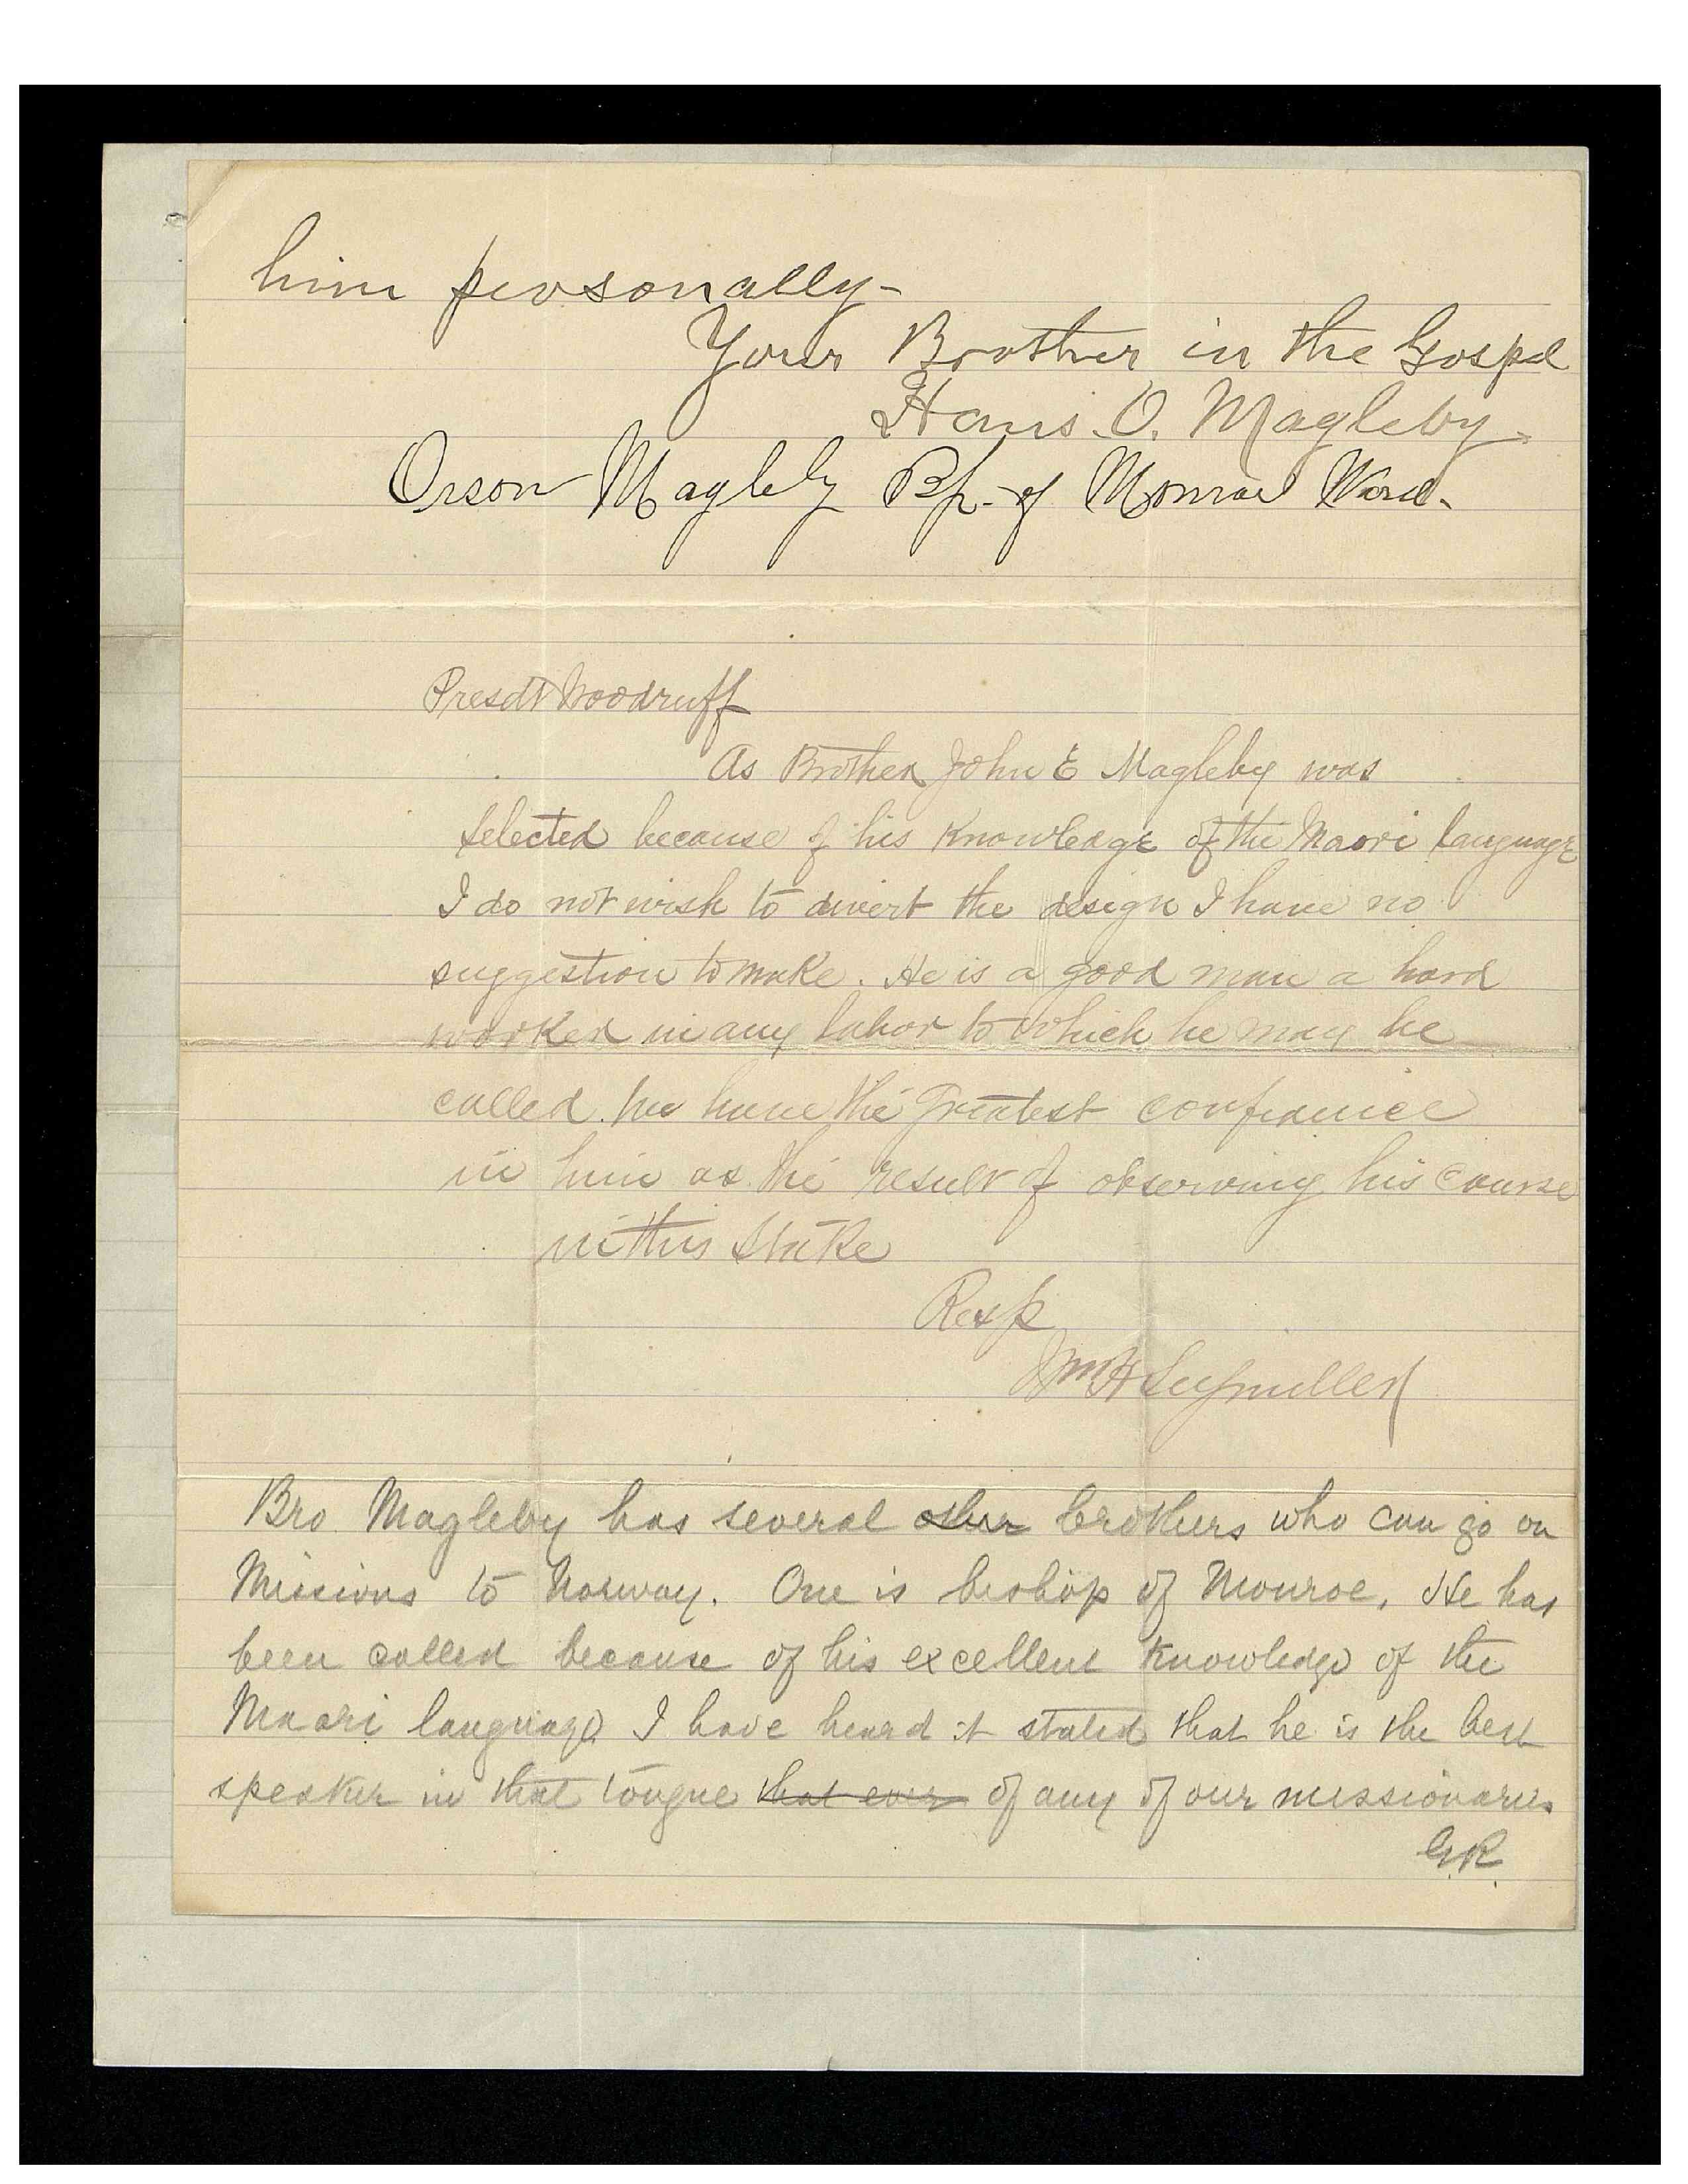 him personally-
Your Brother in the Gospel
Hans. O. Magleby.
Orson Magleby Bp. of Monroe Ward.
Presdt Woodruff
As Brother John E Magleby was
selected because of his knowledge of the Maori language
I do not wish to divert the design I have no
suggestion to make. He is a good man a hard
worker in any labor to which he may be
called. We have the greatest confidence
in him as the result of observing his course
in this Stake
Resp
Wm H Seegmiller
Bro Magleby has several other brothers who can go on
Missions to Norway. One is bishop of Monroe. He has
been called because of his excellent knowledge of the
Maori language I have heard it stated that he is the best
speaker in that tongue that ever of any of our missionaries.
G.R.